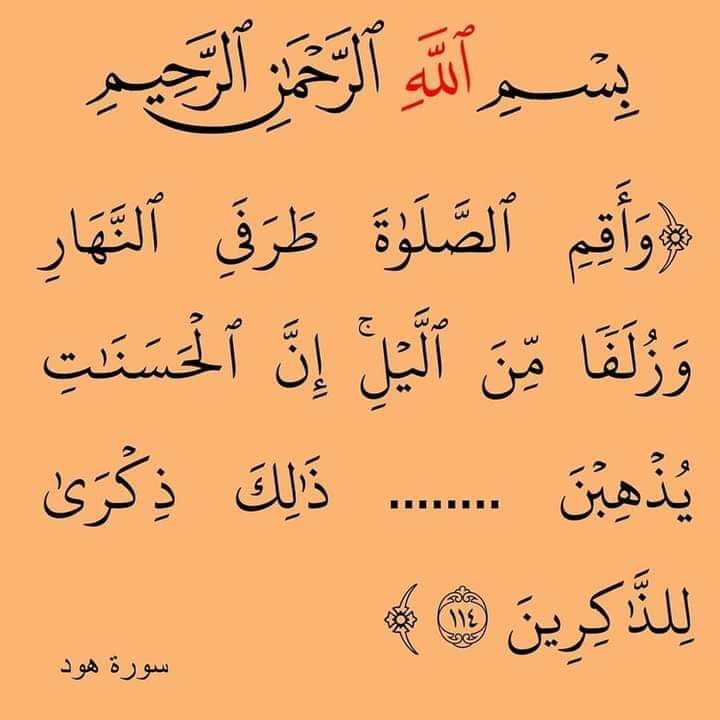 بِسْمِ ٱللَّهِ ٱلرَّحْمَٰنِ ٱلرَّحِيمِ
﴿وَأَقِمِ ٱلصَّلَوٰةَ طَرَفَىِ ٱلنَّهَارِ
وَزُلَفًا مِّنَ ٱلَّيْلِ ۚ إِنَّ ٱلْحَسَنَـٰتِ
يُذْهِبْنَ ........ ذَٰلِكَ ذِكْرَىٰ
لِلذَّٰكِرِينَ ١١٤ ﴾
سورة هود